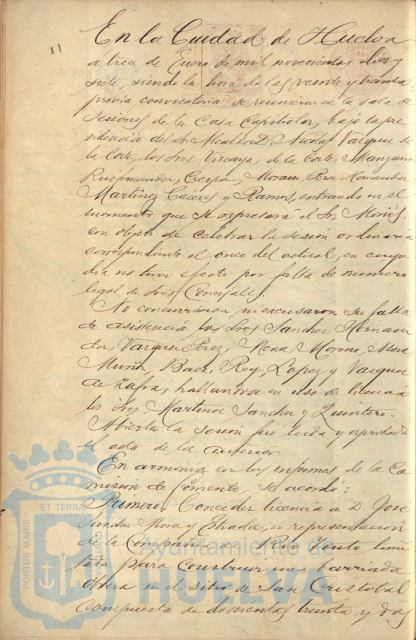 11
En la Ciudad de Huelva
a trece de Enero de mil novecientos diez y
siete, siendo la hora de las veinte y treinta,
previa convocatoria se reunieron en la sala de
sesiones de la Casa Capitular, bajo la pre
sidencia del Sr. Alcalde D. Nicolas Vazquez de
la Corte, los Sres. Vizcaya, de la Corte, Manzano
Crespo, Moran, Pera,
Martinez, Caceres y Ramos, entrando en el
momento que se expresará el Sr.
con objeto de celebrar la sesión ordinaria
correspondiente al once del actual, en cuyo
dia no tuvo efecto por falta de numero
legal de Sres. Concejales.
No concurrieron ni excusaron su falta
de asistencia los Sres. Sanchez Hernan
dez, Vazquez Perez, Mena, Moreno, Mora
Muñiz, Baez, Rey, Lopez y Vazquez
de Zafra, hallandose en uso de licencia
los Sres. Martinez Sanchez y Quintero.
Abierta la sesión fué leida y aprobada
el acta de la anterior.
En armonia con los informes de la Co
mision de Fomento se acordó:
Primero: Conceder licencia a D. José
Mora y en representación
de la Compañia de Rio Tinto limi
tada para construir una barriada
obrera en el sitio de San Cristobal
compuesta de doscientas treinta y dos
PORTUS MARIS ET TERRAE CUSTODIA
Ayuntamiento de
HUELVA